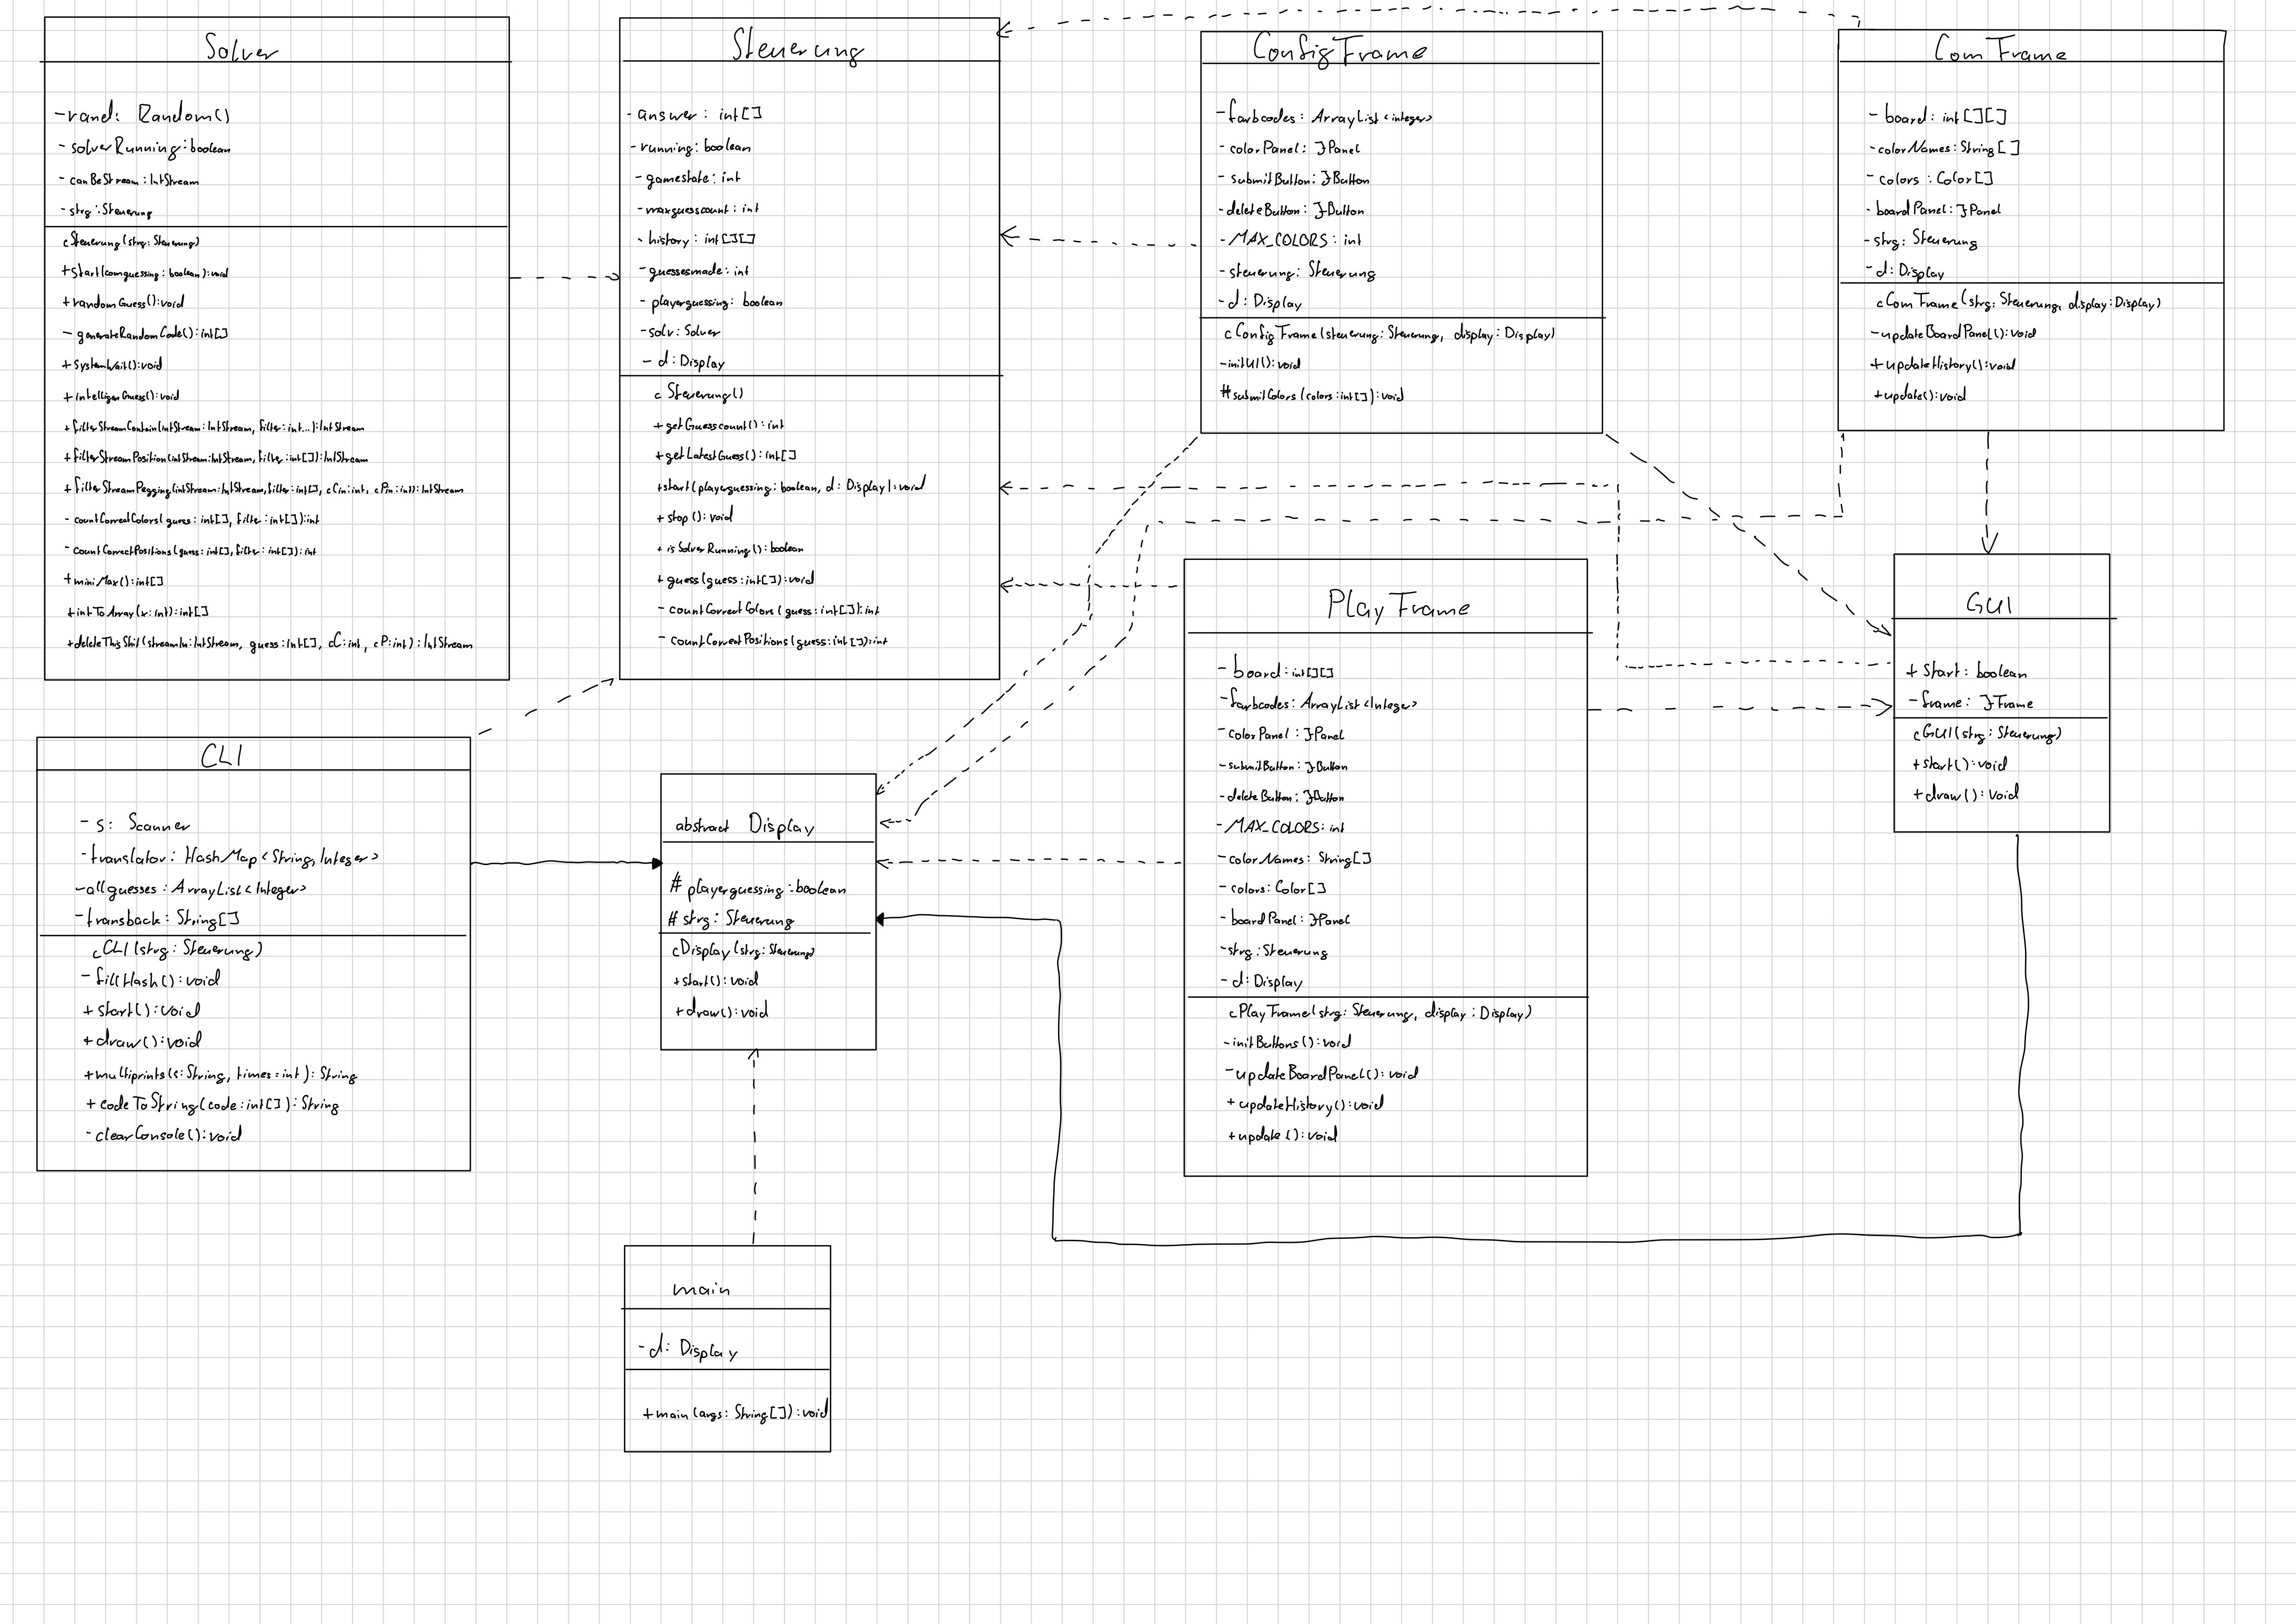 Solver
-rand: Random()
- solverRunning: boolean
- canBeStream: IntStream
- strg: Steuerung
c Steuerung(strg: Steuerung)
+start(comguessing: boolean): void
+randomGuess(): void
- generateRandomCode(): int[]
+systemWait(): void
+intelligenGuess(): void
+filterStreamContain(intStream: IntStream, filter: int...): IntStream
+filterStreamPosition(intStream: IntStream, filter: int[]): IntStream
+filterStreamPegging(intStream: IntStream, filter: int[], cCin: int, cPin: int): IntStream
- countCorrectColors(guess: int[], filter: int[]): int
- countCorrectPositions(guess: int[], filter: int[]): int
+miniMax(): int[]
+intToArray(x: int): int[]
+deleteThisShit(streamIn: IntStream, guess: int[], cC: int, cP: int): IntStream
Steuerung
- answer: int[]
- running: boolean
- gamestate: int
- maxguesscount: int
- history: int[][]
- guessesmade: int
- playerguessing: boolean
- solv: Solver
- d: Display
c Steuerung()
+getGuesscount(): int
+getLatestGuess(): int[]
+start(playerguessing: boolean, d: Display): void
+stop(): void
+isSolverRunning(): boolean
+guess(guess: int[]): void
- countCorrectColors(guess: int[]): int
- countCorrectPositions(guess: int[]): int
ConfigFrame
- farbcodes: ArrayList<integer>
- colorPanel: JPanel
- submitButton: JButton
- deleteButton: JButton
- MAX_COLORS: int
- steuerung: Steuerung
- d: Display
c ConfigFrame(steuerung: Steuerung, display: Display)
-initUI(): void
#submitColors(colors: int[]): void
ComFrame
- board: int[][]
- colorNames: String[]
- colors: Color[]
- boardPanel: JPanel
- strg: Steuerung
- d: Display
c ComFrame(strg: Steuerung, display: Display)
- updateBoardPanel(): void
+updateHistory(): void
+update(): void
PlayFrame
- board: int[][]
- farbcodes: ArrayList<Integer>
- colorPanel: JPanel
- submitButton: JButton
- deleteButton: JButton
- MAX_COLORS: int
- colorNames: String[]
- colors: Color[]
- boardPanel: JPanel
- strg: Steuerung
- d: Display
cPlayFrame(strg: Steuerung, display: Display)
- initButtons(): void
- updateBoardPanel(): void
+updateHistory(): void
+update(): void
GUI
+ Start: boolean
- frame: JFrame
cGUI(strg: Steuerung)
+start(): void
+draw(): void
CLI
- s: Scanner
- translator: HashMap<String, Integer>
- allguesses: ArrayList<Integer>
- transback: String[]
cCLI(strg: Steuerung)
- fillHash(): void
+ start(): void
+ draw(): void
+multiprints(s: String, times: int): String
+ codeToString(code: int[]): String
- clearConsole(): void
abstract Display
# playerguessing: boolean
# strg: Steuerung
cDisplay(strg: Steuerung)
+start(): void
+draw(): void
main
- d: Display
+main(args: String[]): void